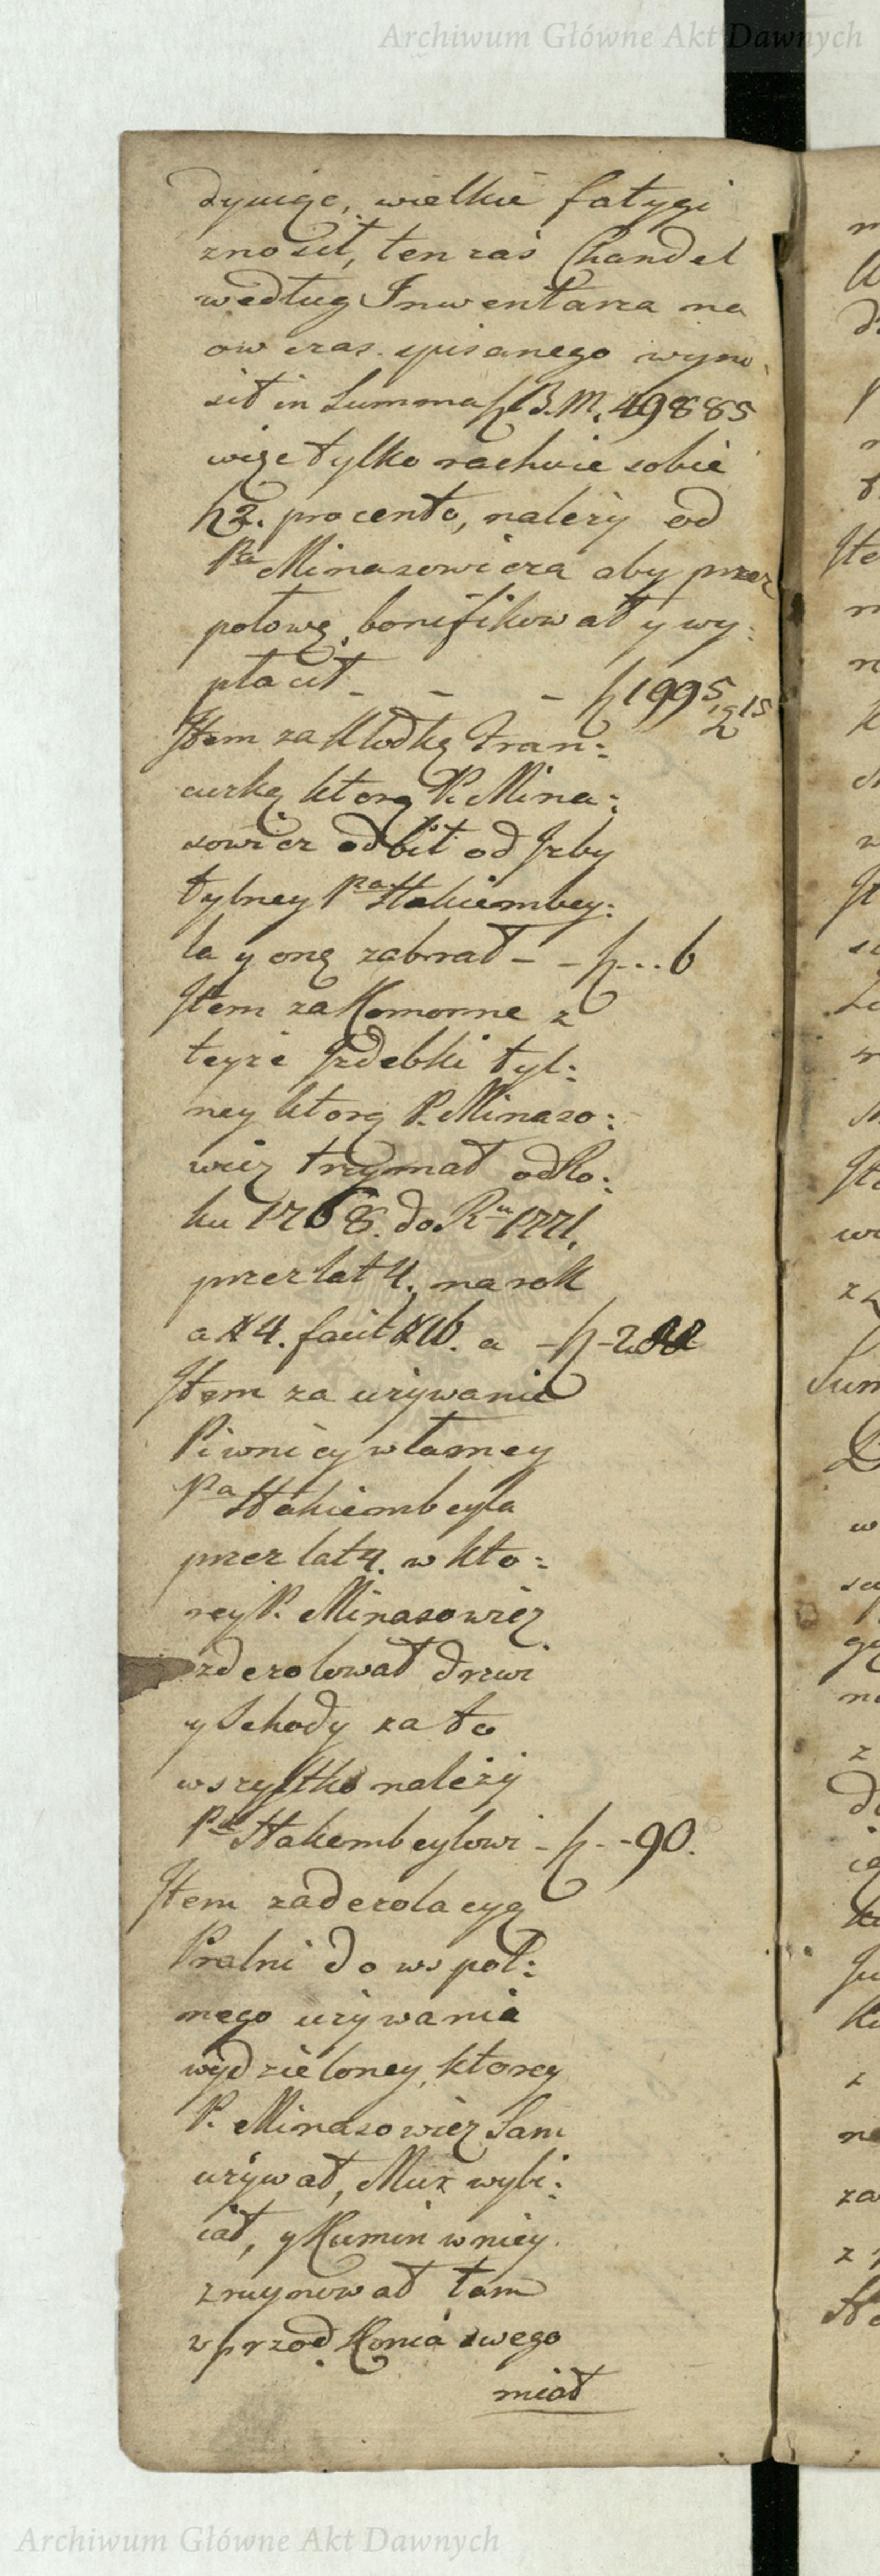 Archiwum Główne Akt Dawnych
dyuiąc, wielkie fatygi
znosił, ten zaś Chandel
według Inwentarza na
ow czas spisanego wyno
sił in Summa fl B. M. 49885
więc tylko rachuie sobie
procento, należy od
Pa Minasowicza aby przez
połowę bonifikował y wy:
płacił - - - fl 1995
Item za Kłodkę Fran:
cuzką ktorą P. Mina:
sowicz odbił od Izby
tylney Pa Hakiembey:
la y oną zabrał - - fl...6
Item za Komorne z
teyże Izdebki tyl:
ney ktorą P. Minaso:
wicz trzymał od Ro:
ku 1768. do Ru 1771.
przez lat 4. na rok
a # 4. facit # 16. a - fl
Item za używanie
Piwnicy własney
Pa Hakiembeyla
przez lat 4. w kto:
rey P. Minasowicz
zdezolował drzwi
y Schody za to
wszystko należy
Hakembeylowi - fl - - 90.
Item za dezolacyą
Pralni do wspol:
nego używania
wydzieloney, ktorey
P. Minasowicz Sam
używał, Mur wybi:
iał, y Kumin w niey
zruynował tam
wprzod Konia swego
miał
Archiwum Główne Akt Dawnych